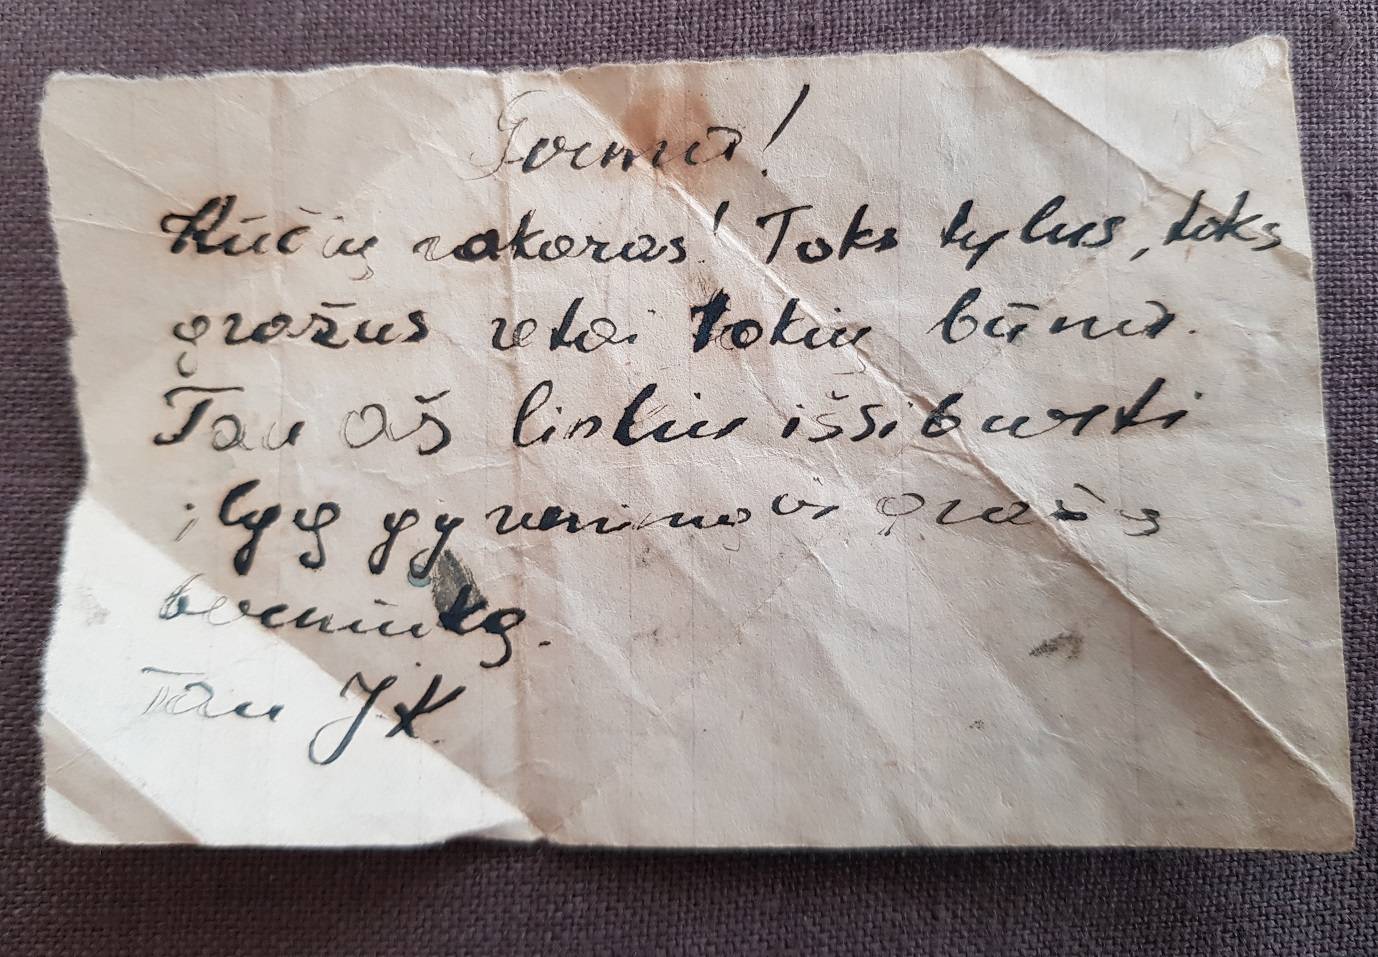 Kūčių vakaras! Toks tylus, toks
gražus retai tokių būna.
Tau aš linkiu išsiburti
ilgą gyvenimą ir gražų
berniuką.
Tau JK